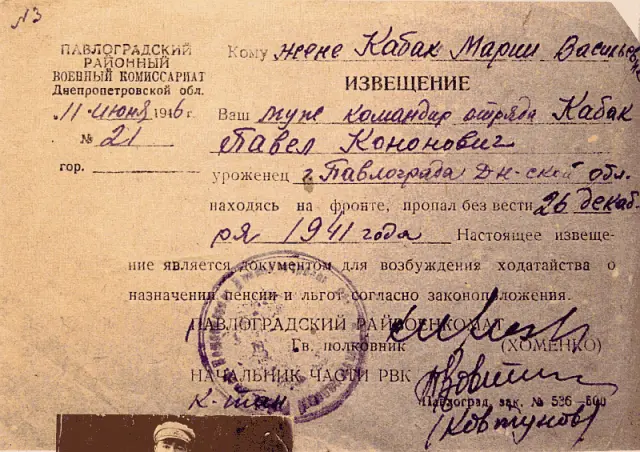 №3
ПАВЛОГРАДСКИЙ
РАЙОННЫЙ
ВОЕННЫЙ КОМИССАРИАТ
Днепропетровской обл.
11 июня 1946 г.
№ 21
гор.
Кому жене Кабак Марии Васильевне
ИЗВЕЩЕНИЕ
Ваш муж командир отряда Кабак
Павел Кононович
уроженец г. Павлограда Дн-ской обл.
находясь на фронте, пропал без вести 26 декаб-
ря 1941 года Настоящее извеще-
ние является документом для возбуждения ходатайства о
назначении пенсии и льгот согласно законоположения.
ПАВЛОГРАДСКИЙ РАЙВОЕНКОМАТ
Гв. полковник (ХОМЕНКО)
НАЧАЛЬНИК ЧАСТИ РВК
К-тан
Павлоград, зак. № 536-600
(Ковтунов)